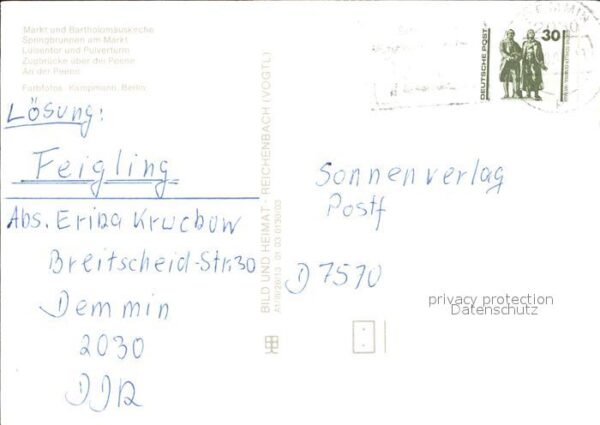 Markt und Bartholomäuskirche
Springbrunnen am Markt
Luisentor und Pulverturm
Zugbrücke über die Peene
An der Peene
Farbfotos: Kampmann, Berlin
Lösung:
Feigling
Abs. Erika Kruchow
Breitscheid-Str. 30
Demmin
2030
DDR
BILD UND HEIMAT · REICHENBACH (VOGTL)
DEMMIN
2030
DEUTSCHE POST
30
Sonnenverlag
Postf
D 7570
privacy protection
Datenschutz